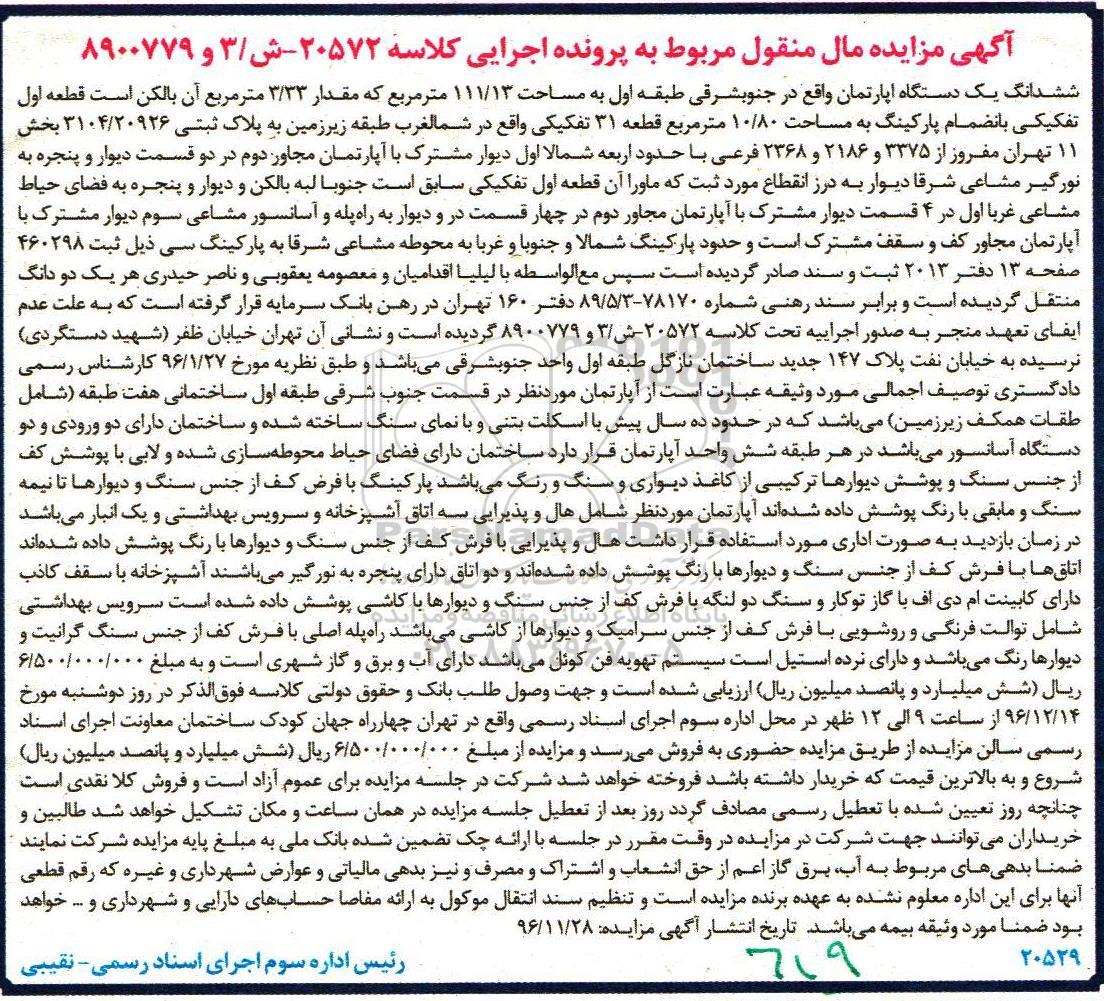 آگهی مزایده مال منقول مربوط به پرونده اجرایی کلاسه ۲۰۵۷۲-ش/۳ و ۸۹۰۰۷۷۹
ششدانگ یک دستگاه اپارتمان واقع در جنوبشرقی طبقه اول به مساحت ۱۱۱/۱۳ مترمربع که مقدار ۳/۳۳ مترمربع آن بالکن است قطعه اول
تفکیکی بانضمام پارکینگ به مساحت ۱۰/۸۰ مترمربع قطعه ۳۱ تفکیکی واقع در شمالغرب طبقه زیرزمین به پلاک ثبتی ۳۱۰۴/۲۰۹۲۶ بخش
۱۱ تهران مفروز از ۳۳۷۵ و ۲۱۸۶ و ۲۳۶۸ فرعی با حدود اربعه شمالا اول دیوار مشترک با آپارتمان مجاور دوم در دو قسمت دیوار و پنجره به
نورگیر مشاعی شرقا دیوار به درز انقطاع مورد ثبت که ماورا آن قطعه اول تفکیکی سابق است جنوبا لبه بالکن و دیوار و پنجره به فضای حیاط
مشاعی غربا اول در ۴ قسمت دیوار مشترک با آپارتمان مجاور دوم در چهار قسمت در و دیوار به راه‌پله و آسانسور مشاعی سوم دیوار مشترک با
آپارتمان مجاور کف و سقف مشترک است و حدود پارکینگ شمالا و جنوبا و غربا به محوطه مشاعی شرقا به پارکینگ سی ذیل ثبت ۴۶۰۲۹۸
صفحه ۱۳ دفتر ۲۰۱۳ ثبت و سند صادر گردیده است سپس مع‌الواسطه با لیلیا اقدامیان و معصومه یعقوبی و ناصر حیدری هر یک دو دانگ
منتقل گردیده است و برابر سند رهنی شماره ۷۸۱۷۰-۸۹/۵/۳ دفتر ۱۶۰ تهران در رهن بانک سرمایه قرار گرفته است که به علت عدم
ایفای تعهد منجر به صدور اجراییه تحت کلاسه ۲۰۵۷۲-ش/۳ و ۸۹۰۰۷۷۹ گردیده است و نشانی آن تهران خیابان ظفر (شهید دستگردی)
نرسیده به خیابان نفت پلاک ۱۴۷ جدید ساختمان نازگل طبقه اول واحد جنوبشرقی می‌باشد و طبق نظریه مورخ ۹۶/۱/۲۷ کارشناس رسمی
دادگستری توصیف اجمالی مورد وثیقه عبارت است از آپارتمان موردنظر در قسمت جنوب شرقی طبقه اول ساختمانی هفت طبقه (شامل
طقات همکف زیرزمین) می‌باشد که در حدود ده سال پیش با اسکلت بتنی و با نمای سنگ ساخته شده و ساختمان دارای دو ورودی و دو
دستگاه آسانسور می‌باشد در هر طبقه شش واحد آپارتمان قرار دارد ساختمان دارای فضای حیاط محوطه‌سازی شده و لابی با پوشش کف
از جنس سنگ و پوشش دیوارها ترکیبی از کاغذ دیواری و سنگ و رنگ می‌باشد پارکینگ با فرض کف از جنس سنگ و دیوارها تا نیمه
سنگ و مابقی با رنگ پوشش داده شده‌اند آپارتمان موردنظر شامل هال و پذیرایی سه اتاق آشپزخانه و سرویس بهداشتی و یک انبار می‌باشد
در زمان بازدید به صورت اداری مورد استفاده قرار داشت هال و پذیرایی با فرش کف از جنس سنگ و دیوارها با رنگ پوشش داده شده‌اند
اتاق‌ها با فرش کف از جنس سنگ و دیوارها با رنگ پوشش داده شده‌اند و دو اتاق دارای پنجره به نورگیر می‌باشند آشپزخانه با سقف کاذب
دارای کابینت ام دی اف با گاز توکار و سنگ دو لنگه با فرش کف از جنس سنگ و دیوارها با کاشی پوشش داده شده است سرویس بهداشتی
شامل توالت فرنگی و روشویی با فرش کف از جنس سرامیک و دیوارها از کاشی می‌باشد راه‌پله اصلی با فرش کف از جنس سنگ گرانیت و
دیوارها رنگ می‌باشد و دارای نرده استیل است سیستم تهویه فن کوئل می‌باشد دارای آب و برق و گاز شهری است و به مبلغ ۶/۵۰۰/۰۰۰/۰۰۰
ریال (شش میلیارد و پانصد میلیون ریال) ارزیابی شده است و جهت وصول طلب بانک و حقوق دولتی کلاسه فوق‌الذکر در روز دوشنبه مورخ
۹۶/۱۲/۱۴ از ساعت ۹ الی ۱۲ ظهر در محل اداره سوم اجرای اسناد رسمی واقع در تهران چهارراه جهان کودک ساختمان معاونت اجرای اسناد
رسمی سالن مزایده از طریق مزایده حضوری به فروش می‌رسد و مزایده از مبلغ ۶/۵۰۰/۰۰۰/۰۰۰ ریال (شش میلیارد و پانصد میلیون ریال)
شروع و به بالاترین قیمت که خریدار داشته باشد فروخته خواهد شد شرکت در جلسه مزایده برای عموم آزاد است و فروش کلا نقدی است
چنانچه روز تعیین شده با تعطیل رسمی مصادف گردد روز بعد از تعطیل جلسه مزایده در همان ساعت و مکان تشکیل خواهد شد طالبین و
خریداران می‌توانند جهت شرکت در مزایده در وقت مقرر در جلسه با ارائه چک تضمین شده بانک ملی به مبلغ پایه مزایده شرکت نمایند
ضمنا بدهی‌های مربوط به آب، برق گاز اعم از حق انشعاب و اشتراک و مصرف و نیز بدهی مالیاتی و عوارض شهرداری و غیره که رقم قطعی
آنها برای این اداره معلوم نشده به عهده برنده مزایده است و تنظیم سند انتقال موکول به ارائه مفاصا حساب‌های دارایی و شهرداری و ... خواهد
بود ضمنا مورد وثیقه بیمه می‌باشد. تاریخ انتشار آگهی مزایده: ۹۶/۱۱/۲۸
۲۰۵۲۹
۶۱۹
رئیس اداره سوم اجرای اسناد رسمی- نقیبی
ParsNamadData
پایگاه اطلاع رسانی مناقصه و مزایده
۰۲۱-۸۸۳۴۹۶۷۰-۵